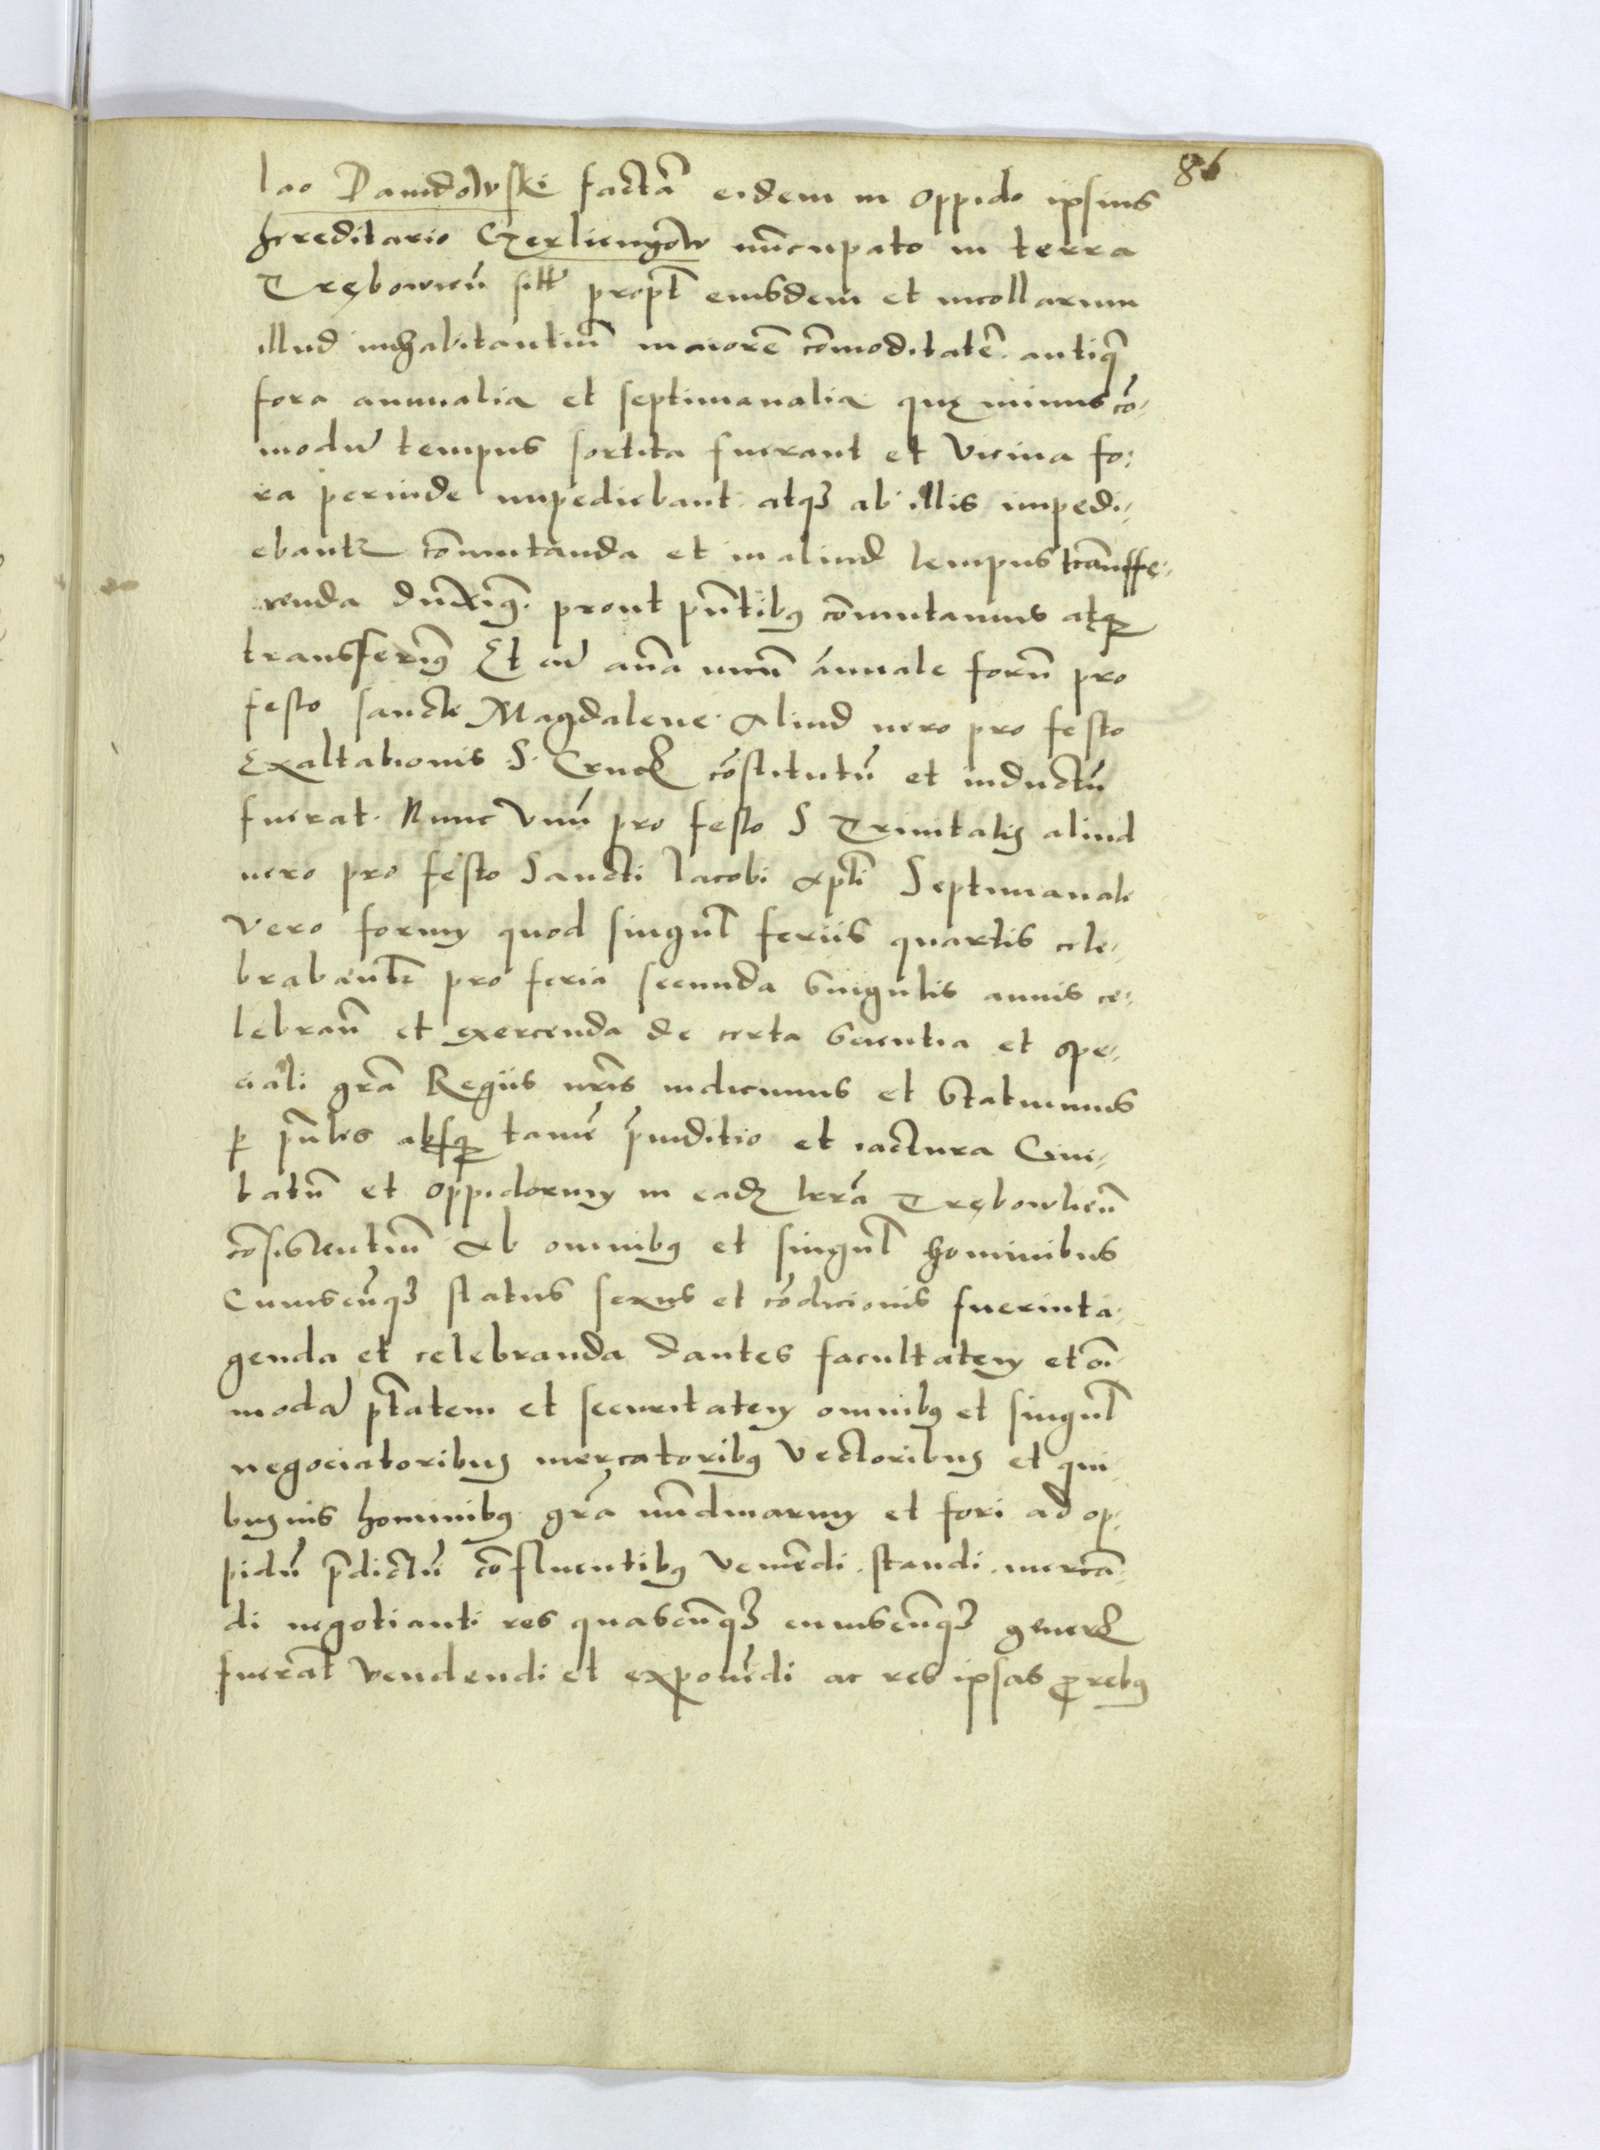 86
lao Dauidowski factã eidem in oppido ipsius
hereditario Czerliengow nũcupato in terra
Trębowień sitł propt eiusdem et incollarum
illud inhabitantiũ maiorẽ cõmoditatẽ antiq̃
fora annualia et septimanalia quę minus cõ-
modũ tempus sortita fuerant et vicina fo-
ra perinde impediebant atq3 ab illis impedi-
ebantr cõmutanda et in aliud tempus trãnsfe-
renda dũximꝰ prout pñtibꝰ cõmutamus atqꝫ
transferimꝰ Et cũ añea vnũ annuale forũ pro
festo sancte Magdalene aliud uero pro festo
Exaltationis S Cruc cõstitutũ et inductũ
fuerat Nunc vnũ pro festo S Trinitatis aliud
uero pro festo Sancti Jacobi apli Septimanale
vero forum quod singul feriis quartis cele-
brabantr pro feria secunda singulis annis ce-
lebrañ et exercenda de certa scientia et spe-
ciali grã Regiis nrĩs indicimus et statuimus
ꝑ pñtes absqꝫ tamẽ p̃iuditio et iactura Ciui-
tatũ et oppidorum in eadꝫ terrã Trębowlień
cõsistentiũ ab omnibꝰ et singul hominibus
Cuiuscũq3 status sexus et cõdicionis fuerint a-
genda et celebranda dantes facultatem et oĩ-
modã ptatem et securitatem omnibꝰ et singul
negociatoribus mercatoribꝰ vectoribus et qui-
busuis hominibꝰ grã nũdinarum et fori ad op-
pidũ p̃dictũ cõfluentibꝰ veniẽdi standi mercã-
di negotianti res quascũq3 cuiuscũq3 gener
fuerãt vendendi et exponẽdi ac res ipsas ꝓ rebꝰ